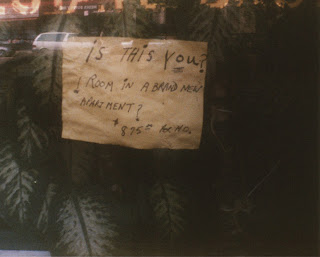 is THis you?
1 ROOM IN A BRAND NEW
APARTMENT?
$875.00 PER MO.